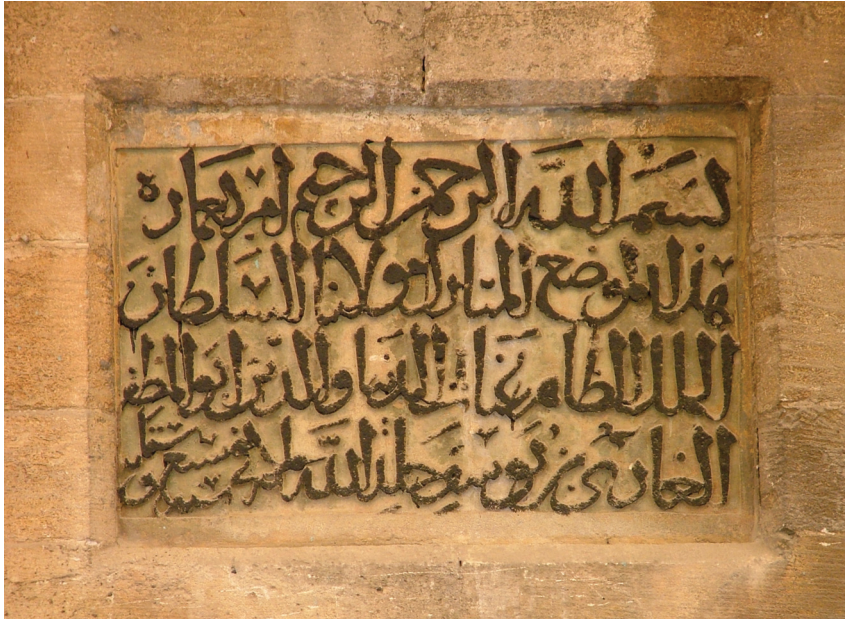 بسم الله الرحمن الرحيم امر بعمارة
هذا الموضع المبارك مولانا السلطان
الملك الظاهر غياث الدنيا والدين ابو المظفر
الغازي بن يوسف خلد الله ملكه